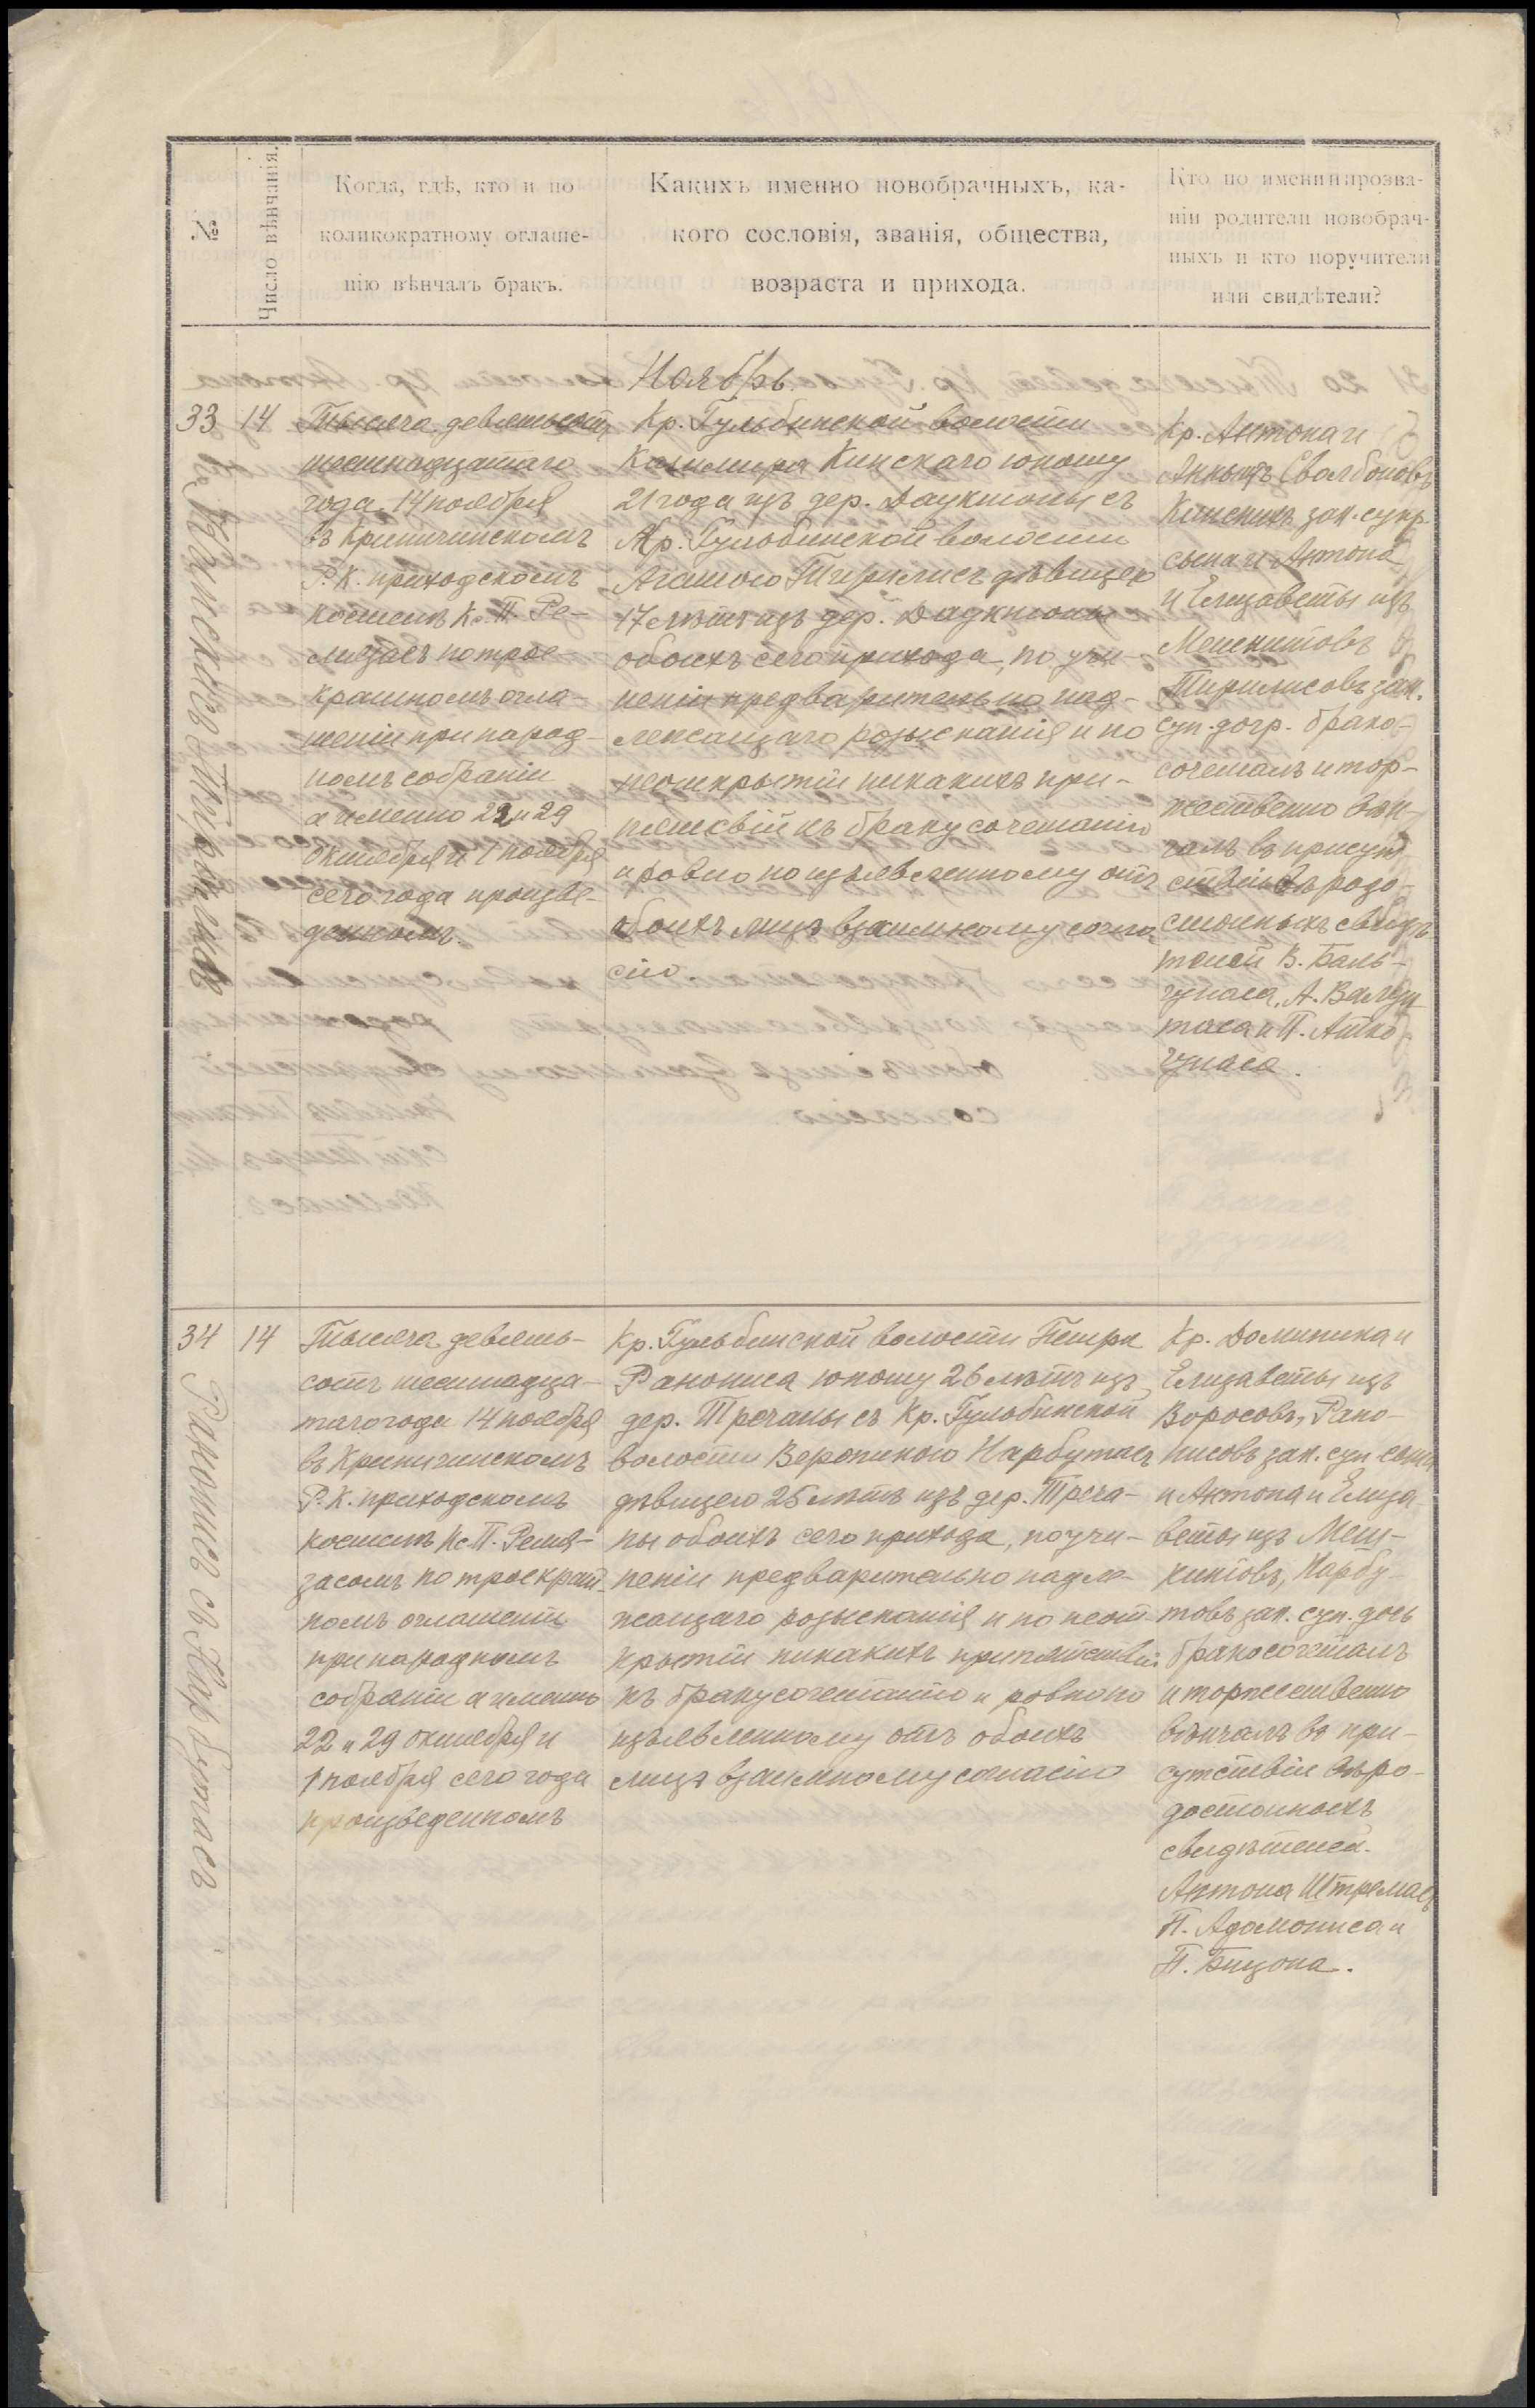 №
Число вѣнчанія.
Когда, гдѣ, кто и по
коликократному оглаше-
нію вѣнчалъ бракъ.
Какихъ именно новобрачныхъ, ка-
кого сословія, званія, общества,
возраста и прихода.
Кто по имени и прозва-
ніи родители новобрач-
ныхъ и кто поручители
или свидѣтели?
Ноябрь.
33
14
Тысяча девятьсотъ
шестнадцатаго
года 14 ноября
въ Криничинскомъ
Р. К. приходскомъ
костелѣ Кс. П. Ре-
мязасъ по трое-
кратномъ огла-
шеніи при народ-
номъ собраніи
а именно 22 и 29
октября и 1 ноября
сего года произве-
денномъ.
Кр. Гульбинской волости
Казимира Кинскаго юношу
21 года изъ дер. Даукшоны съ
Кр. Гульбинской волости
Агатою Тирилисъ дѣвицею
17 лѣтъ изъ дер. Даукшоны
обоихъ сего прихода, по учи-
неніи предварительно над-
лежащаго розысканія и по
неоткрытіи никакихъ при-
пятсвій къ бракусочетанію
и ровно по изъявленному отъ
обоихъ лицъ взаимному согла
сію
Кр. Антона и
Анны изъ
Кинскихъ зак. супр.
сына и Антона
и Елизаветы изъ
Мешкитовъ
Тирилисовъ зак.
суп. доч. брако-
сочеталъ и тор-
жественно вѣн-
чалъ въ присут
ствіи вѣродо-
стойныхъ свидѣ
телей В. Баль-
чунаса, А.
и П. Атко
чунаса.
34
14
Раконисъ съ Нарбутасъ
Тысяча девять-
сотъ шестнадца-
таго года 14 ноября
въ Криничинскомъ
Р. К. приходскомъ
костелѣ Кс. П. Ремя-
засомъ по троекрат-
номъ оглашеніи
при народномъ
собраніи а именно
22 и 29 октября и
1 ноября сего года
произведенномъ
Кр. Гульбинской волости Петра
Ракониса юношу 26 лѣтъ изъ
дер. Тречаны съ Кр. Гульбинской
волости Вероникою Нарбутасъ
дѣвицею 25 лѣтъ изъ дер. Треча-
ны обоихъ сего прихода, по учи-
неніи предварительно надле-
жащаго розысканія и по неот
крытіи никакихъ припятствій
къ бракусочетанію и ровно по
изъявленному отъ обоихъ
лицъ взаимному согласію
Кр. Доминика и
Елизаветы изъ
Воросовъ, Рако-
нисовъ зак. суп сына
и Антона и Елиза-
веты изъ Меш-
китовъ, Нарбу-
товъ зак. суп. дочь
бракосочеталъ
и торжественно
вѣнчалъ въ при-
сутствіи вѣро-
достойныхъ
свидѣтелей.
Антона Штремасъ
П. Адомониса и
П. Бицона.